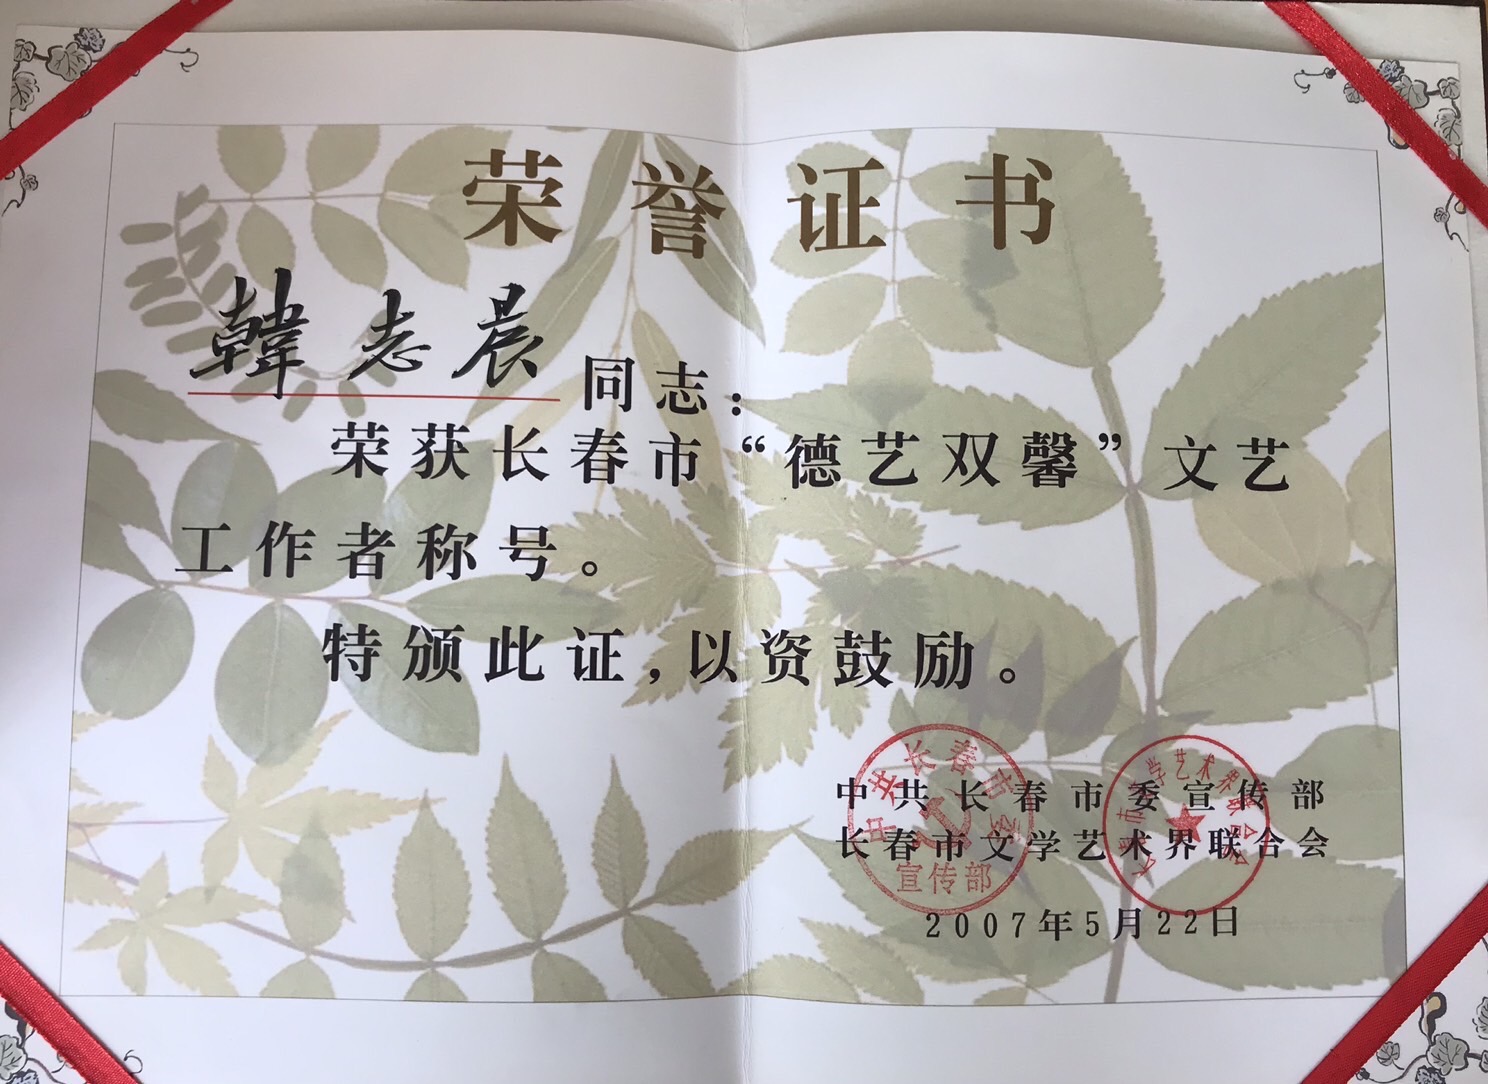 荣誉证书
韓志晨同志：
荣获长春市“德艺双馨”文艺
工作者称号。
特颁此证，以资鼓励。
中共长春市委宣传部
长春市文学艺术界联合会
2007年5月22日
中共长春市委
宣传部
长春市文学艺术界联合会